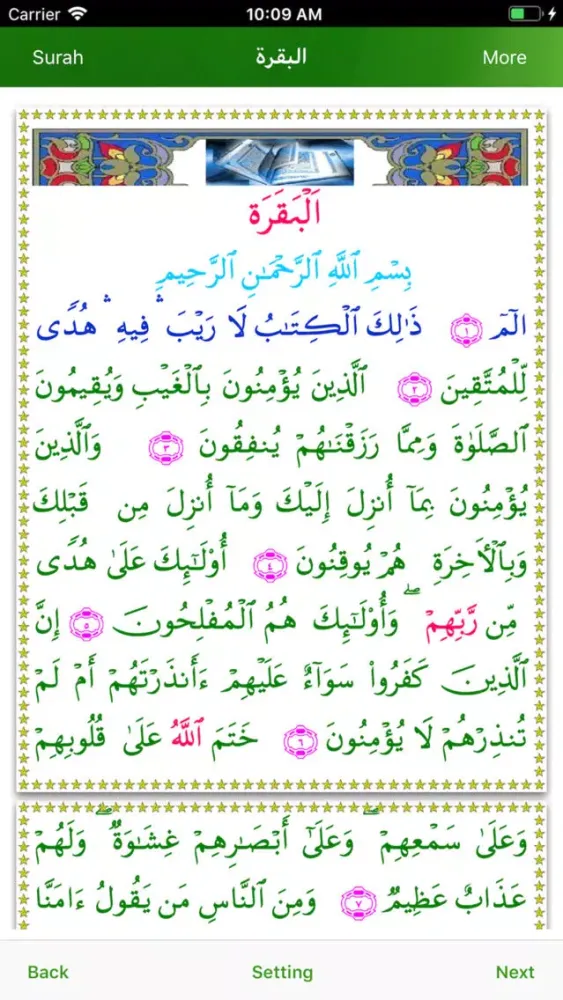 Carrier 10:09 AM
Surah البقرة More
اَلْبَقَرَة
بِسْمِ ٱللَّهِ ٱلرَّحْمَـٰنِ ٱلرَّحِيمِ
الٓمٓ ۝١ ذَٰلِكَ ٱلْكِتَـٰبُ لَا رَيْبَ ۛ فِيهِ ۛ هُدًى
لِّلْمُتَّقِينَ ۝٢ ٱلَّذِينَ يُؤْمِنُونَ بِٱلْغَيْبِ وَيُقِيمُونَ
ٱلصَّلَوٰةَ وَمِمَّا رَزَقْنَـٰهُمْ يُنفِقُونَ ۝٣ وَٱلَّذِينَ
يُؤْمِنُونَ بِمَآ أُنزِلَ إِلَيْكَ وَمَآ أُنزِلَ مِن قَبْلِكَ
وَبِٱلْـَٔاخِرَةِ هُمْ يُوقِنُونَ ۝٤ أُو۟لَـٰٓئِكَ عَلَىٰ هُدًى
مِّن رَّبِّهِمْ ۖ وَأُو۟لَـٰٓئِكَ هُمُ ٱلْمُفْلِحُونَ ۝٥ إِنَّ
ٱلَّذِينَ كَفَرُوا۟ سَوَآءٌ عَلَيْهِمْ ءَأَنذَرْتَهُمْ أَمْ لَمْ
تُنذِرْهُمْ لَا يُؤْمِنُونَ ۝٦ خَتَمَ ٱللَّهُ عَلَىٰ قُلُوبِهِمْ
وَعَلَىٰ سَمْعِهِمْ ۖ وَعَلَىٰٓ أَبْصَـٰرِهِمْ غِشَـٰوَةٌ ۖ وَلَهُمْ
عَذَابٌ عَظِيمٌ ۝٧ وَمِنَ ٱلنَّاسِ مَن يَقُولُ ءَامَنَّا
Back Setting Next